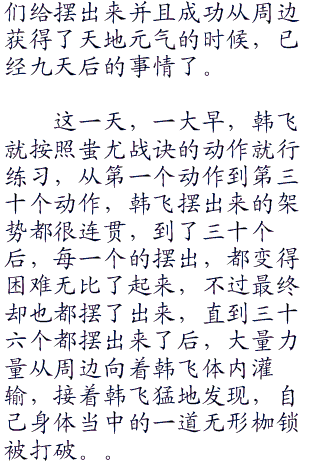 们给摆出来并且成功从周边
获得了天地元气的时候，已
经九天后的事情了。
这一天，一大早，韩飞
就按照蚩尤战诀的动作就行
练习，从第一个动作到第三
十个动作，韩飞摆出来的架
势都很连贯，到了三十个
后，每一个的摆出，都变得
困难无比了起来，不过最终
却也都摆了出来，直到三十
六个都摆出来了后，大量力
量从周边向着韩飞体内灌
输，接着韩飞猛地发现，自
己身体当中的一道无形枷锁
被打破。。